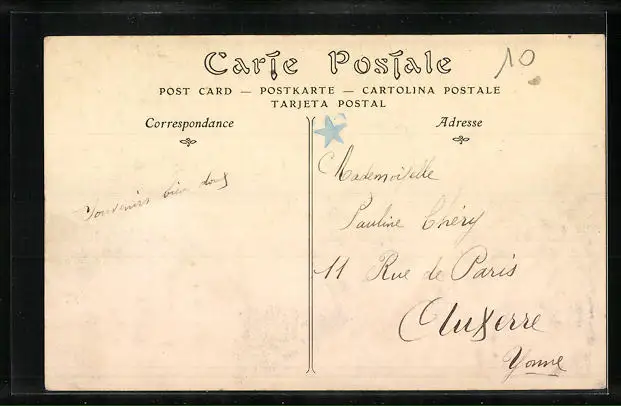 Carte Postale
10
POST CARD — POSTKARTE — CARTOLINA POSTALE
TARJETA POSTAL
Correspondance
Adresse
Souvenirs bien doux
Mademoiselle
Pauline Chéry
11 Rue de Paris
Auxerre
Yonne